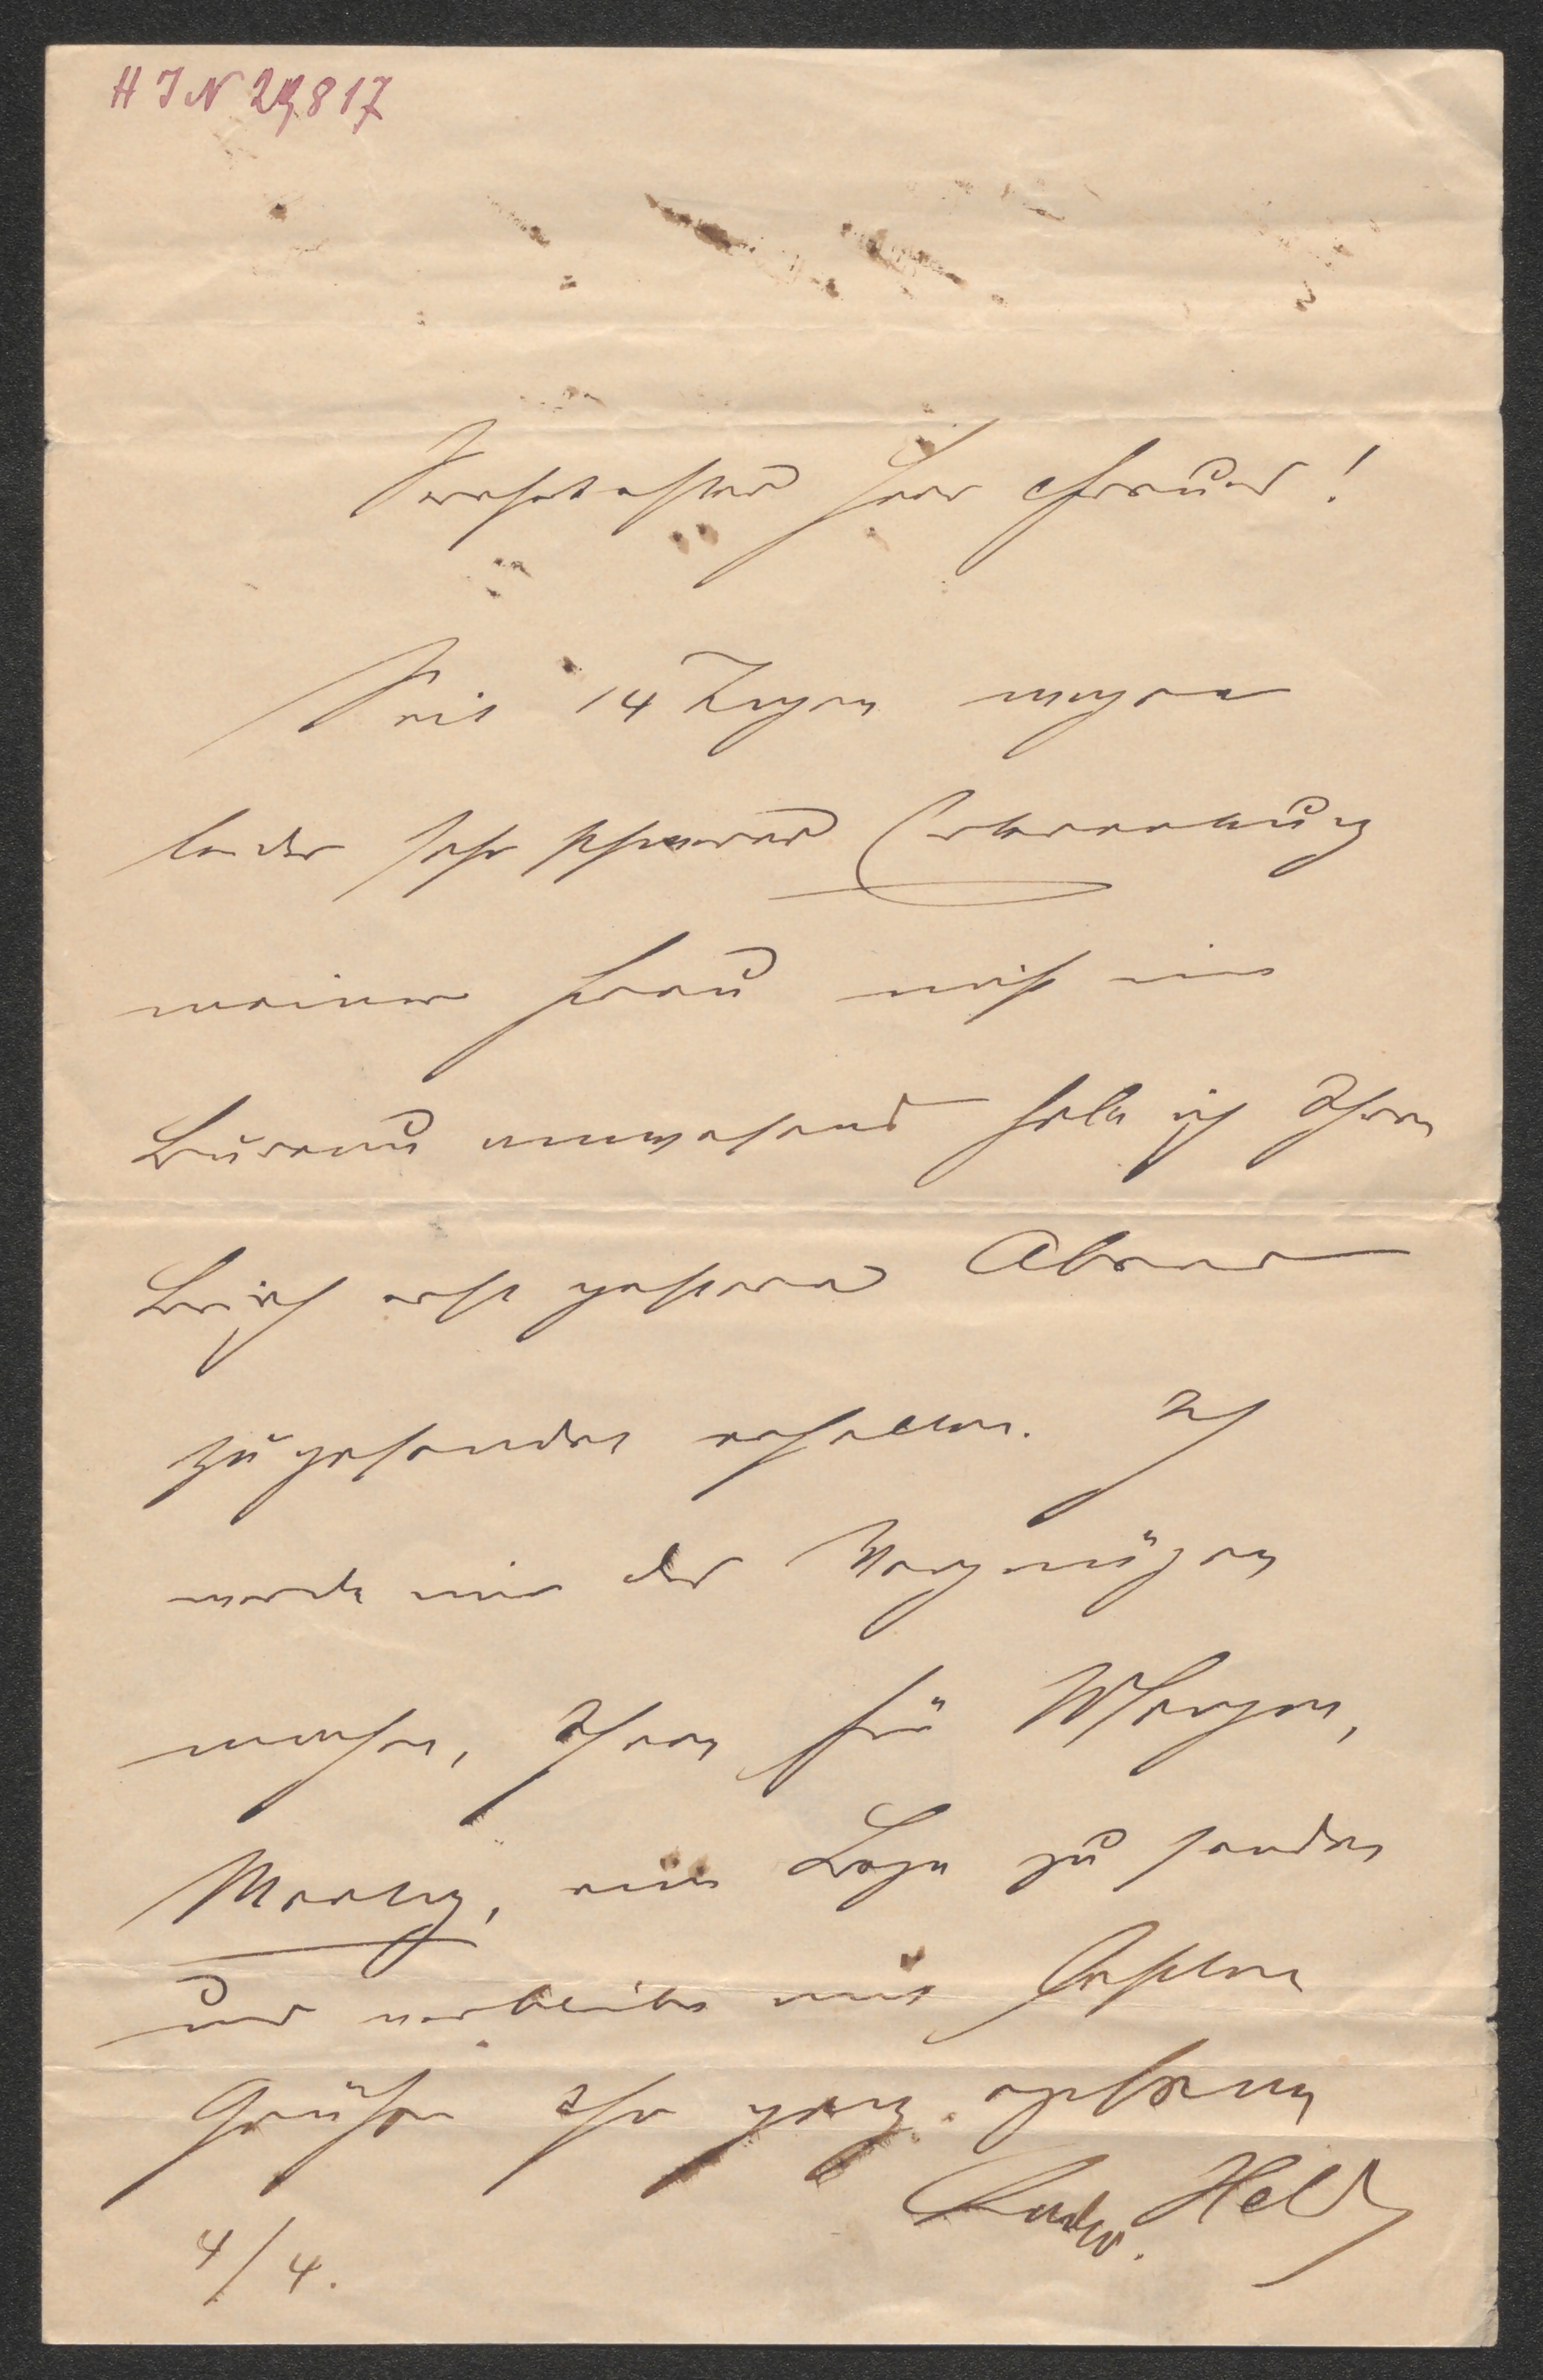 H I N 29,817
Verehrtester Herr Freund!
Seit 14 Tagen wegen
leider sehr schwerer Erkrankung
meiner Frau nicht im
Bureau anwesend habe ich Ihren
Brief erst gestern Abend
zugesendet erhalten. Ich
werde mir das Vergnügen
machen, Ihnen für Morgen,
Montag, eine Loge zu senden
und verbleibe mit besten
Grüßen Ihr ganz ergebener
Ludw. Held
4/4.